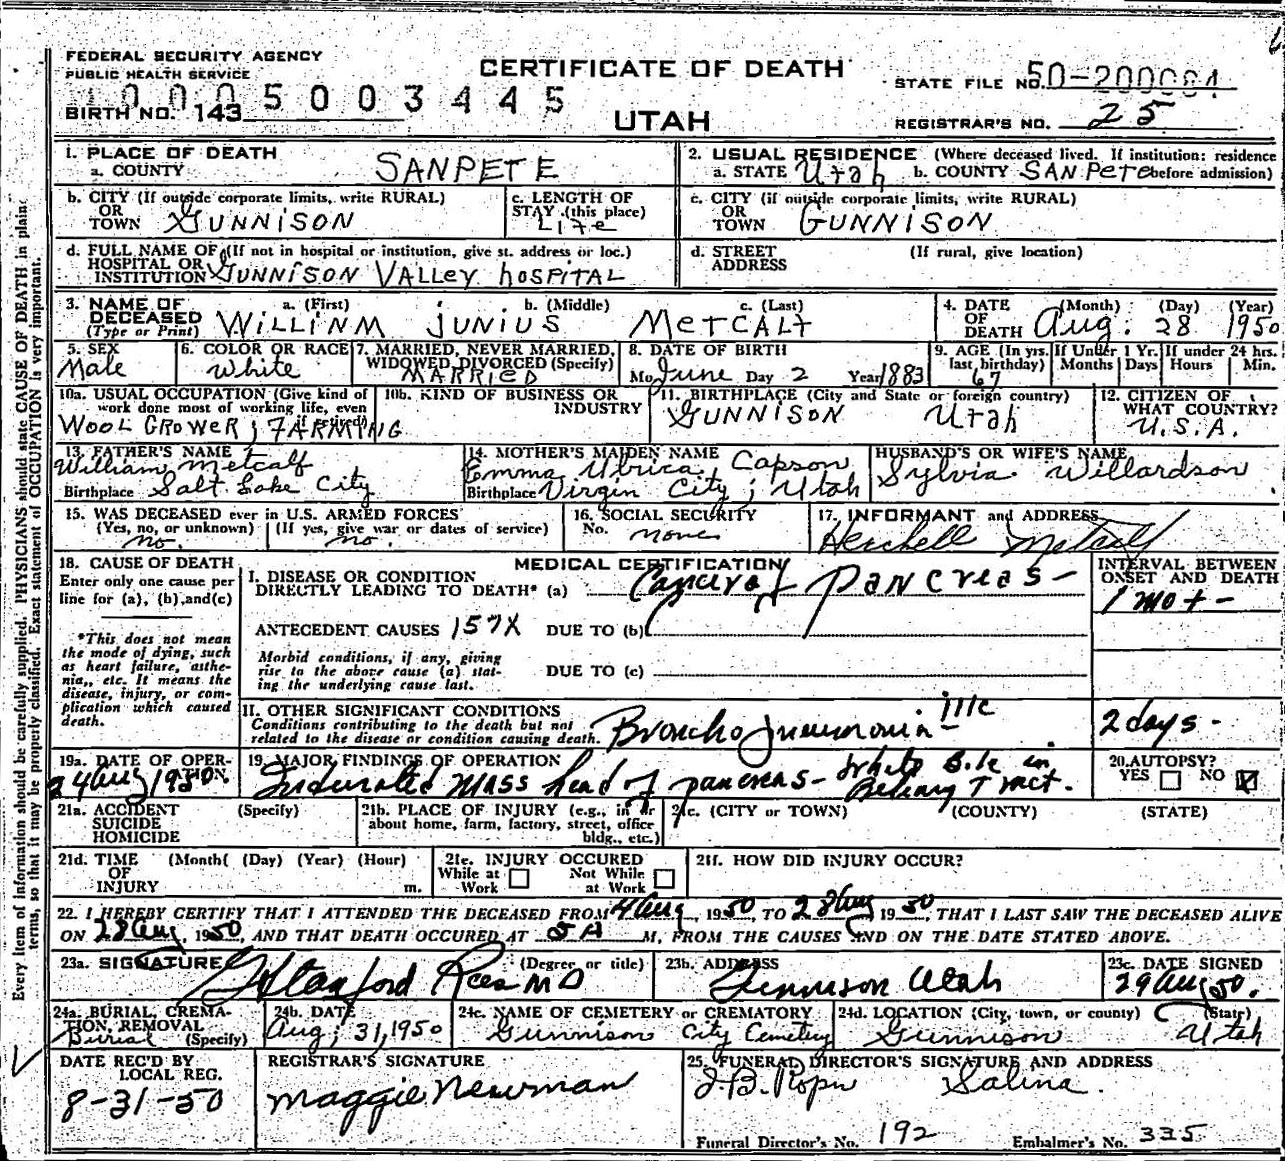 FEDERAL SECURITY AGENCY
PUBLIC HEALTH SERVICE
CERTIFICATE OF DEATH
UTAH
STATE FILE NO. 50-200084
0005003445
BIRTH NO. 143
REGISTRAR'S NO. 25
1. PLACE OF DEATH
a. COUNTY SANPETE
2. USUAL RESIDENCE (Where deceased lived. If institution: residence
a. STATE Utah b. COUNTY SANPete before admission)
b. CITY (If outside corporate limits, write RURAL)
OR
TOWN GUNNISON
c. LENGTH OF
STAY (this place)
Life
c. CITY (if outside corporate limits, write RURAL)
OR
TOWN GUNNISON
d. FULL NAME OF (If not in hospital or institution, give st. address or loc.)
HOSPITAL OR
INSTITUTION GUNNISON VALLey hOSPITAL
d. STREET (If rural, give location)
ADDRESS
3. NAME OF DECEASED (Type or Print)
a. (First) b. (Middle) c. (Last)
WILLINM JUNIUS METCALF
4. DATE OF DEATH
(Month) (Day) (Year)
Aug. 28 1950
5. SEX
Male
6. COLOR OR RACE
White
7. MARRIED, NEVER MARRIED,
WIDOWED, DIVORCED (Specify)
MARRIED
8. DATE OF BIRTH
Mo. June Day 2 Year 1883
9. AGE (In yrs. last birthday) 67
If Under 1 Yr. Months Days
If under 24 hrs. Hours Min.
10a. USUAL OCCUPATION (Give kind of
work done most of working life, even
if retired)
WOOL GROWER; FARMING
10b. KIND OF BUSINESS OR
INDUSTRY
11. BIRTHPLACE (City and State or foreign country)
GUNNISON Utah
12. CITIZEN OF
WHAT COUNTRY?
U.S.A.
13. FATHER'S NAME
William Metcalf
Birthplace Salt Lake City
14. MOTHER'S MAIDEN NAME
Emma Ulrica Capson
Birthplace Virgin City; Utah
HUSBAND'S OR WIFE'S NAME
Sylvia Willardson
15. WAS DECEASED ever in U.S. ARMED FORCES
(Yes, no, or unknown) (If yes, give war or dates of service)
no. no.
16. SOCIAL SECURITY
No. none
17. INFORMANT and ADDRESS
Herchell Metcalf
18. CAUSE OF DEATH
Enter only one cause per
line for (a), (b), and (c)
*This does not mean
the mode of dying, such
as heart failure, asthe-
nia, etc. It means the
disease, injury, or com-
plication which caused
death.
MEDICAL CERTIFICATION
I. DISEASE OR CONDITION
DIRECTLY LEADING TO DEATH* (a) Cancer of Pancreas -
ANTECEDENT CAUSES 157X DUE TO (b)
Morbid conditions, if any, giving
rise to the above cause (a) stat-
ing the underlying cause last.
DUE TO (c)
INTERVAL BETWEEN
ONSET AND DEATH
1 mo + -
II. OTHER SIGNIFICANT CONDITIONS
Conditions contributing to the death but not
related to the disease or condition causing death.
Broncho pneumonia
2 days -
19a. DATE OF OPER-
ATION
24 Aug 1950
19. MAJOR FINDINGS OF OPERATION
Indurated mass head of pancreas - White Bile in
Biliary Tract.
20. AUTOPSY?
YES NO
21a. ACCIDENT (Specify)
SUICIDE
HOMICIDE
21b. PLACE OF INJURY (e.g., in or
about home, farm, factory, street, office
bldg., etc.)
21c. (CITY OR TOWN) (COUNTY) (STATE)
21d. TIME (Month) (Day) (Year) (Hour)
OF
INJURY m.
21e. INJURY OCCURED
While at Work Not While at Work
21f. HOW DID INJURY OCCUR?
22. I HEREBY CERTIFY THAT I ATTENDED THE DECEASED FROM 4 Aug, 1950, TO 28 Aug 1950, THAT I LAST SAW THE DECEASED ALIVE
ON 28 Aug, 1950, AND THAT DEATH OCCURED AT 5 A M, FROM THE CAUSES AND ON THE DATE STATED ABOVE.
23a. SIGNATURE (Degree or title)
G Stanford Rees MD
23b. ADDRESS
Gunnison Utah
23c. DATE SIGNED
29 Aug 50.
24a. BURIAL, CREMA-
TION, REMOVAL
Burial (Specify)
24b. DATE
Aug; 31, 1950
24c. NAME OF CEMETERY or CREMATORY
Gunnison City Cemetery
24d. LOCATION (City, town, or county) (State)
Gunnison Utah
DATE REC'D BY
LOCAL REG.
8-31-50
REGISTRAR'S SIGNATURE
Maggie Newman
25. FUNERAL DIRECTOR'S SIGNATURE AND ADDRESS
Salina.
Funeral Director's No. 192 Embalmer's No. 335
Every item of information should be carefully supplied. PHYSICIANS should state CAUSE OF DEATH in plain
terms, so that it may be properly classified. Exact statement of OCCUPATION is very important.